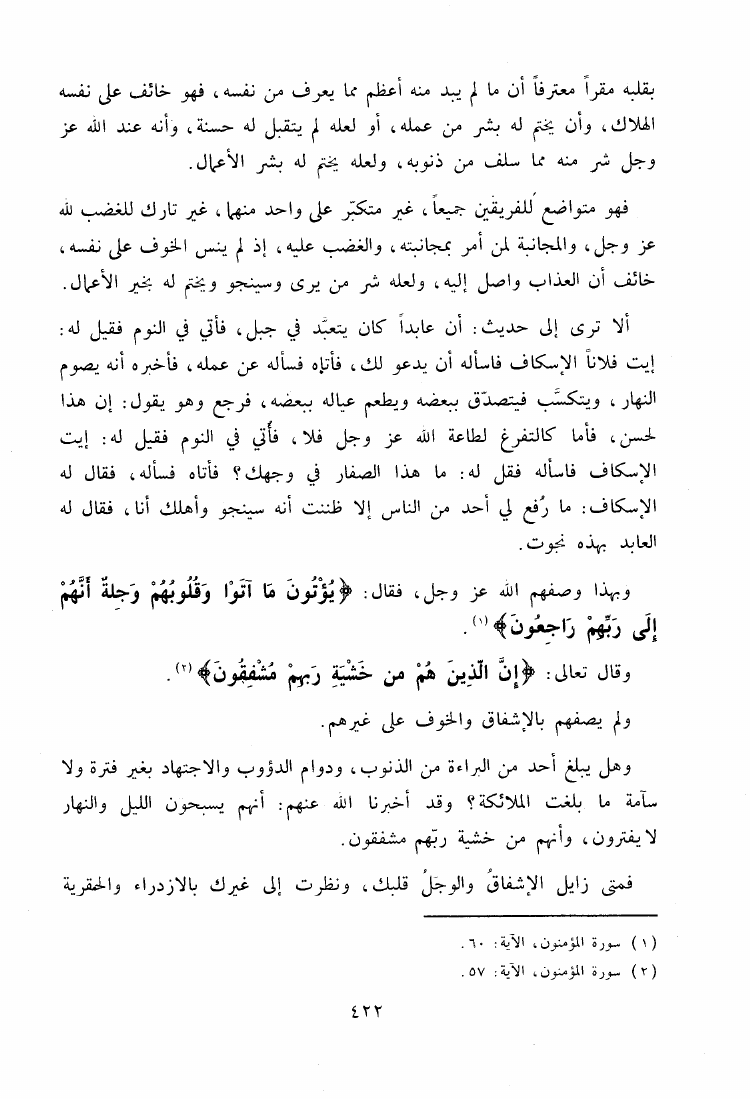 بقلبه مقراً معترفاً أن ما لم يبد منه أعظم مما يعرف من نفسه، فهو خائف على نفسه
الهلاك، وأن يختم له بشر من عمله، أو لعله لم يتقبل له حسنة، وأنه عند الله عز
وجل شر منه مما سلف من ذنوبه، ولعله يختم له بشر الأعمال.
فهو متواضع للفريقين جميعاً، غير متكبّر على واحد منهما، غير تارك للغضب لله
عز وجل، والمجانبة لمن أمر بمجانبته، والغضب عليه، إذ لم ينس الخوف على نفسه،
خائف أن العذاب واصل إليه، ولعله شر من يرى وسينجو ويختم له بخير الأعمال.
ألا ترى إلى حديث: أن عابداً كان يتعبَّد في جبل، فأتي في النوم فقيل له:
إيت فلاناً الإسكاف فاسأله أن يدعو لك، فأتاه فسأله عن عمله، فأخبره أنه يصوم
النهار، ويتكسَّب فيتصدّق ببعضه ويطعم عياله ببعضه، فرجع وهو يقول: إن هذا
لحسن، فأما كالتفرغ لطاعة الله عز وجل فلا، فأُتي في النوم فقيل له: إيت
الإسكاف فاسأله فقل له: ما هذا الصفار في وجهك؟ فأتاه فسأله، فقال له
الإسكاف: ما رُفع لي أحد من الناس إلا ظننت أنه سينجو وأهلك أنا، فقال له
العابد بهذه نجوت.
وبهذا وصفهم الله عز وجل، فقال: ﴿يُؤْتُونَ مَا آتَوْا وَقُلُوبُهُمْ وَجِلةٌ أَنَّهُمْ
إِلَى رَبِّهِمْ رَاجِعُونَ﴾ (١).
وقال تعالى: ﴿إِنَّ الّذِينَ هُمْ من خَشْيَةِ رَبهِمْ مُشْفِقُونَ﴾ (٢).
ولم يصفهم بالإشفاق والخوف على غيرهم.
وهل يبلغ أحد من البراءة من الذنوب، ودوام الدؤوب والاجتهاد بغير فترة ولا
سآمة ما بلغت الملائكة؟ وقد أخبرنا الله عنهم: أنهم يسبحون الليل والنهار
لا يفترون، وأنهم من خشية ربّهم مشفقون.
فمتى زايل الإشفاقُ والوجَلُ قلبك، ونظرت إلى غيرك بالازدراء والحقرية
(١) سورة المؤمنون، الآية: ٦٠.
(٢) سورة المؤمنون، الآية: ٥٧.
٤٢٢